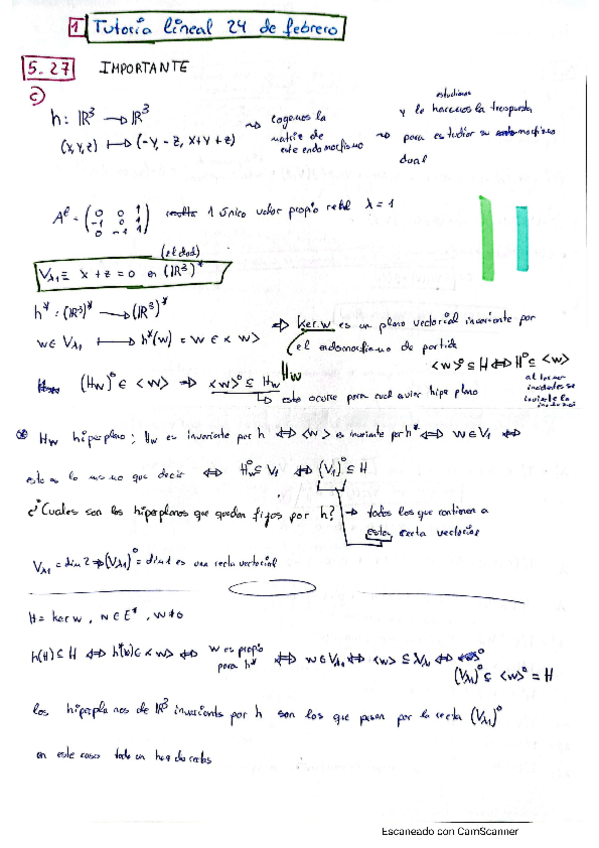 1 Tutoria lineal 24 de febrero
5.27 IMPORTANTE
c)
h: ℝ³ → ℝ³
(x,y,z) ↦ (-y-z, x+y+z)
⇝ cogemos la matriz de este endomorfismo
⇝ estudiamos y le hacemos la traspuesta para estudiar su endomorfismo dual
Aᵗ = (0 0 1 / -1 0 1 / 0 -1 1) 1 único valor propio real λ = 1
(el dual)
V_λ1 ≡ x + z = 0 en (ℝ³)*
h*: (ℝ³)* → (ℝ³)*
w ∈ V_λ1 ↦ h*(w) = w ∈ <w>
⇒ ker w es un plano vectorial invariante por el endomorfismo de partida
H_w
<w>° ⊆ H ⇔ H° ⊆ <w>
al tomar
(H_w)° ∈ <w> ⇒ <w>° ⊆ H_w
↳ esto ocurre para cualquier hiperplano
⊛ H_w hiperplano; H_w es invariante por h ⇔ <w> es invariante por h* ⇔ w ∈ V_1 ⇔
esto es lo mismo que decir ⇔ H_w° ⊆ V_1 ⇔ (V_1)° ⊆ H
¿Cuales son los hiperplanos que quedan fijos por h? → todos los que contienen a esta recta vectorial
V_λ1 = dim 2 ⇒ (V_λ1)° = dim 1 es una recta vectorial
H = ker w, w ∈ E*, w ≠ 0
h(H) ⊆ H ⇔ h*(w) ∈ <w> ⇔ w es propio para h* ⇔ w ∈ V_λ1 ⇔ <w> ⊆ V_λ1 ⇔
(V_λ1)° ⊆ <w>° = H
los hiperplanos de ℝ³ invariants por h son los que pasan por la recta (V_λ1)°
en este caso todo un haz de rectas
Escaneado con CamScanner